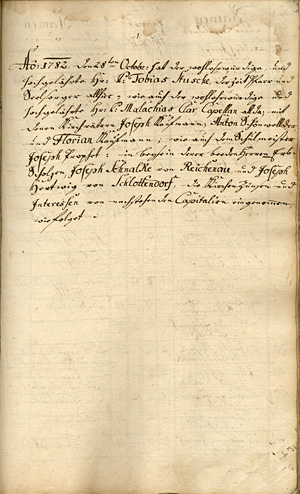 Ao: 1782 den 28ten Octobr: hat der wohlehrwürdige und
Hochgelahrte Hr: P: Tobias Husche derzeit Pfarr und
Seelsorger allhier, wie auch der wohlehrwürdige und
Hochgelahrte Hr: P: Malachias Clar Capellan allda, mit
denen Kirchvätern Joseph Kaufmann, Anton
und Florian Kaufmann, wie auch dem Schulmeister
Joseph Prophet, in beysein derer beeden Herren Erb
Scholzen, Joseph Schnalke von Reichenau und Joseph
Hertwig von Schlottendorf, die Kirchen Zinsen und
Interessen von nachstehenden Capitalien eingenommen
wie folget